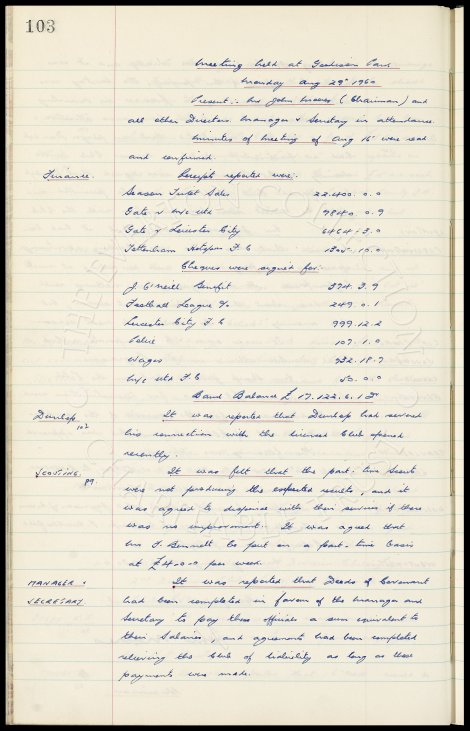 103
Meeting held at Goodison Park
Monday Aug 29th 1960
Present :- Mr John Moores (Chairman) and
all other Directors. Manager & Secretary in attendance.
Minutes of Meeting of Aug 16 were read
and confirmed.
Finance. Receipts reported were:-
Season Ticket Sales 22.400.0.0
Gate v M/c Utd 9840.0.9
Gate v Leicester City 6464.3.0
Tottenham Hotspur F.C 1305.10.0
Cheques were signed for:-
J. O'Neill Benefit 594.3.9
Football League % 249.0.1
Leicester City F.C 999.12.2
Police 107.1.0
Wages 932.18.7
M/c Utd F.C 50.0.0
Bank Balance £17.122.6.1 Dr
Dunlop. 102 It was reported that Dunlop had severed
his connection with the licensed Club opened
recently.
SCOUTING. 89 It was felt that the part-time Scouts
were not producing the expected results, and it
was agreed to dispense with their services if there
was no improvement. It was agreed that
Mr J. Bennett be put on a part-time basis
at £4-0-0 per week.
MANAGER & It was reported that Deeds of Covenant
SECRETARY had been completed in favour of the Manager and
Secretary to pay these officials a sum equivalent to
their Salaries, and agreements had been completed
relieving the Club of liability as long as these
payments were made.